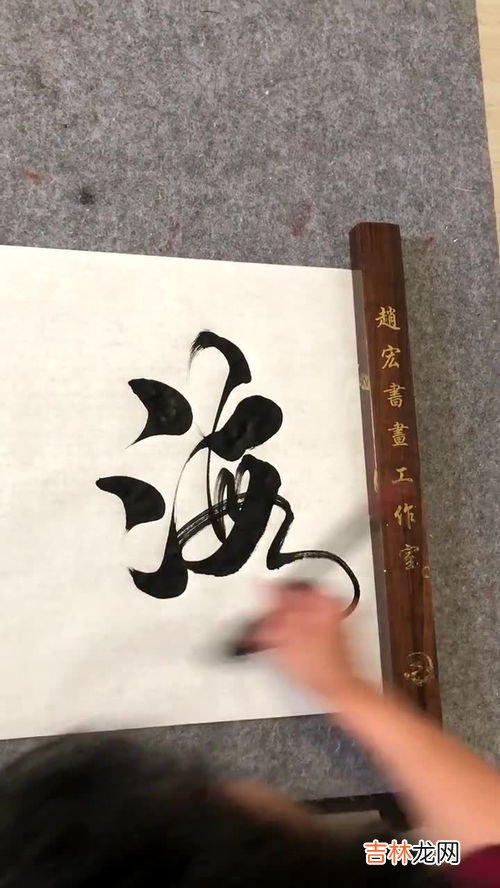 海
趙宏書畫工作室
吉林龙网